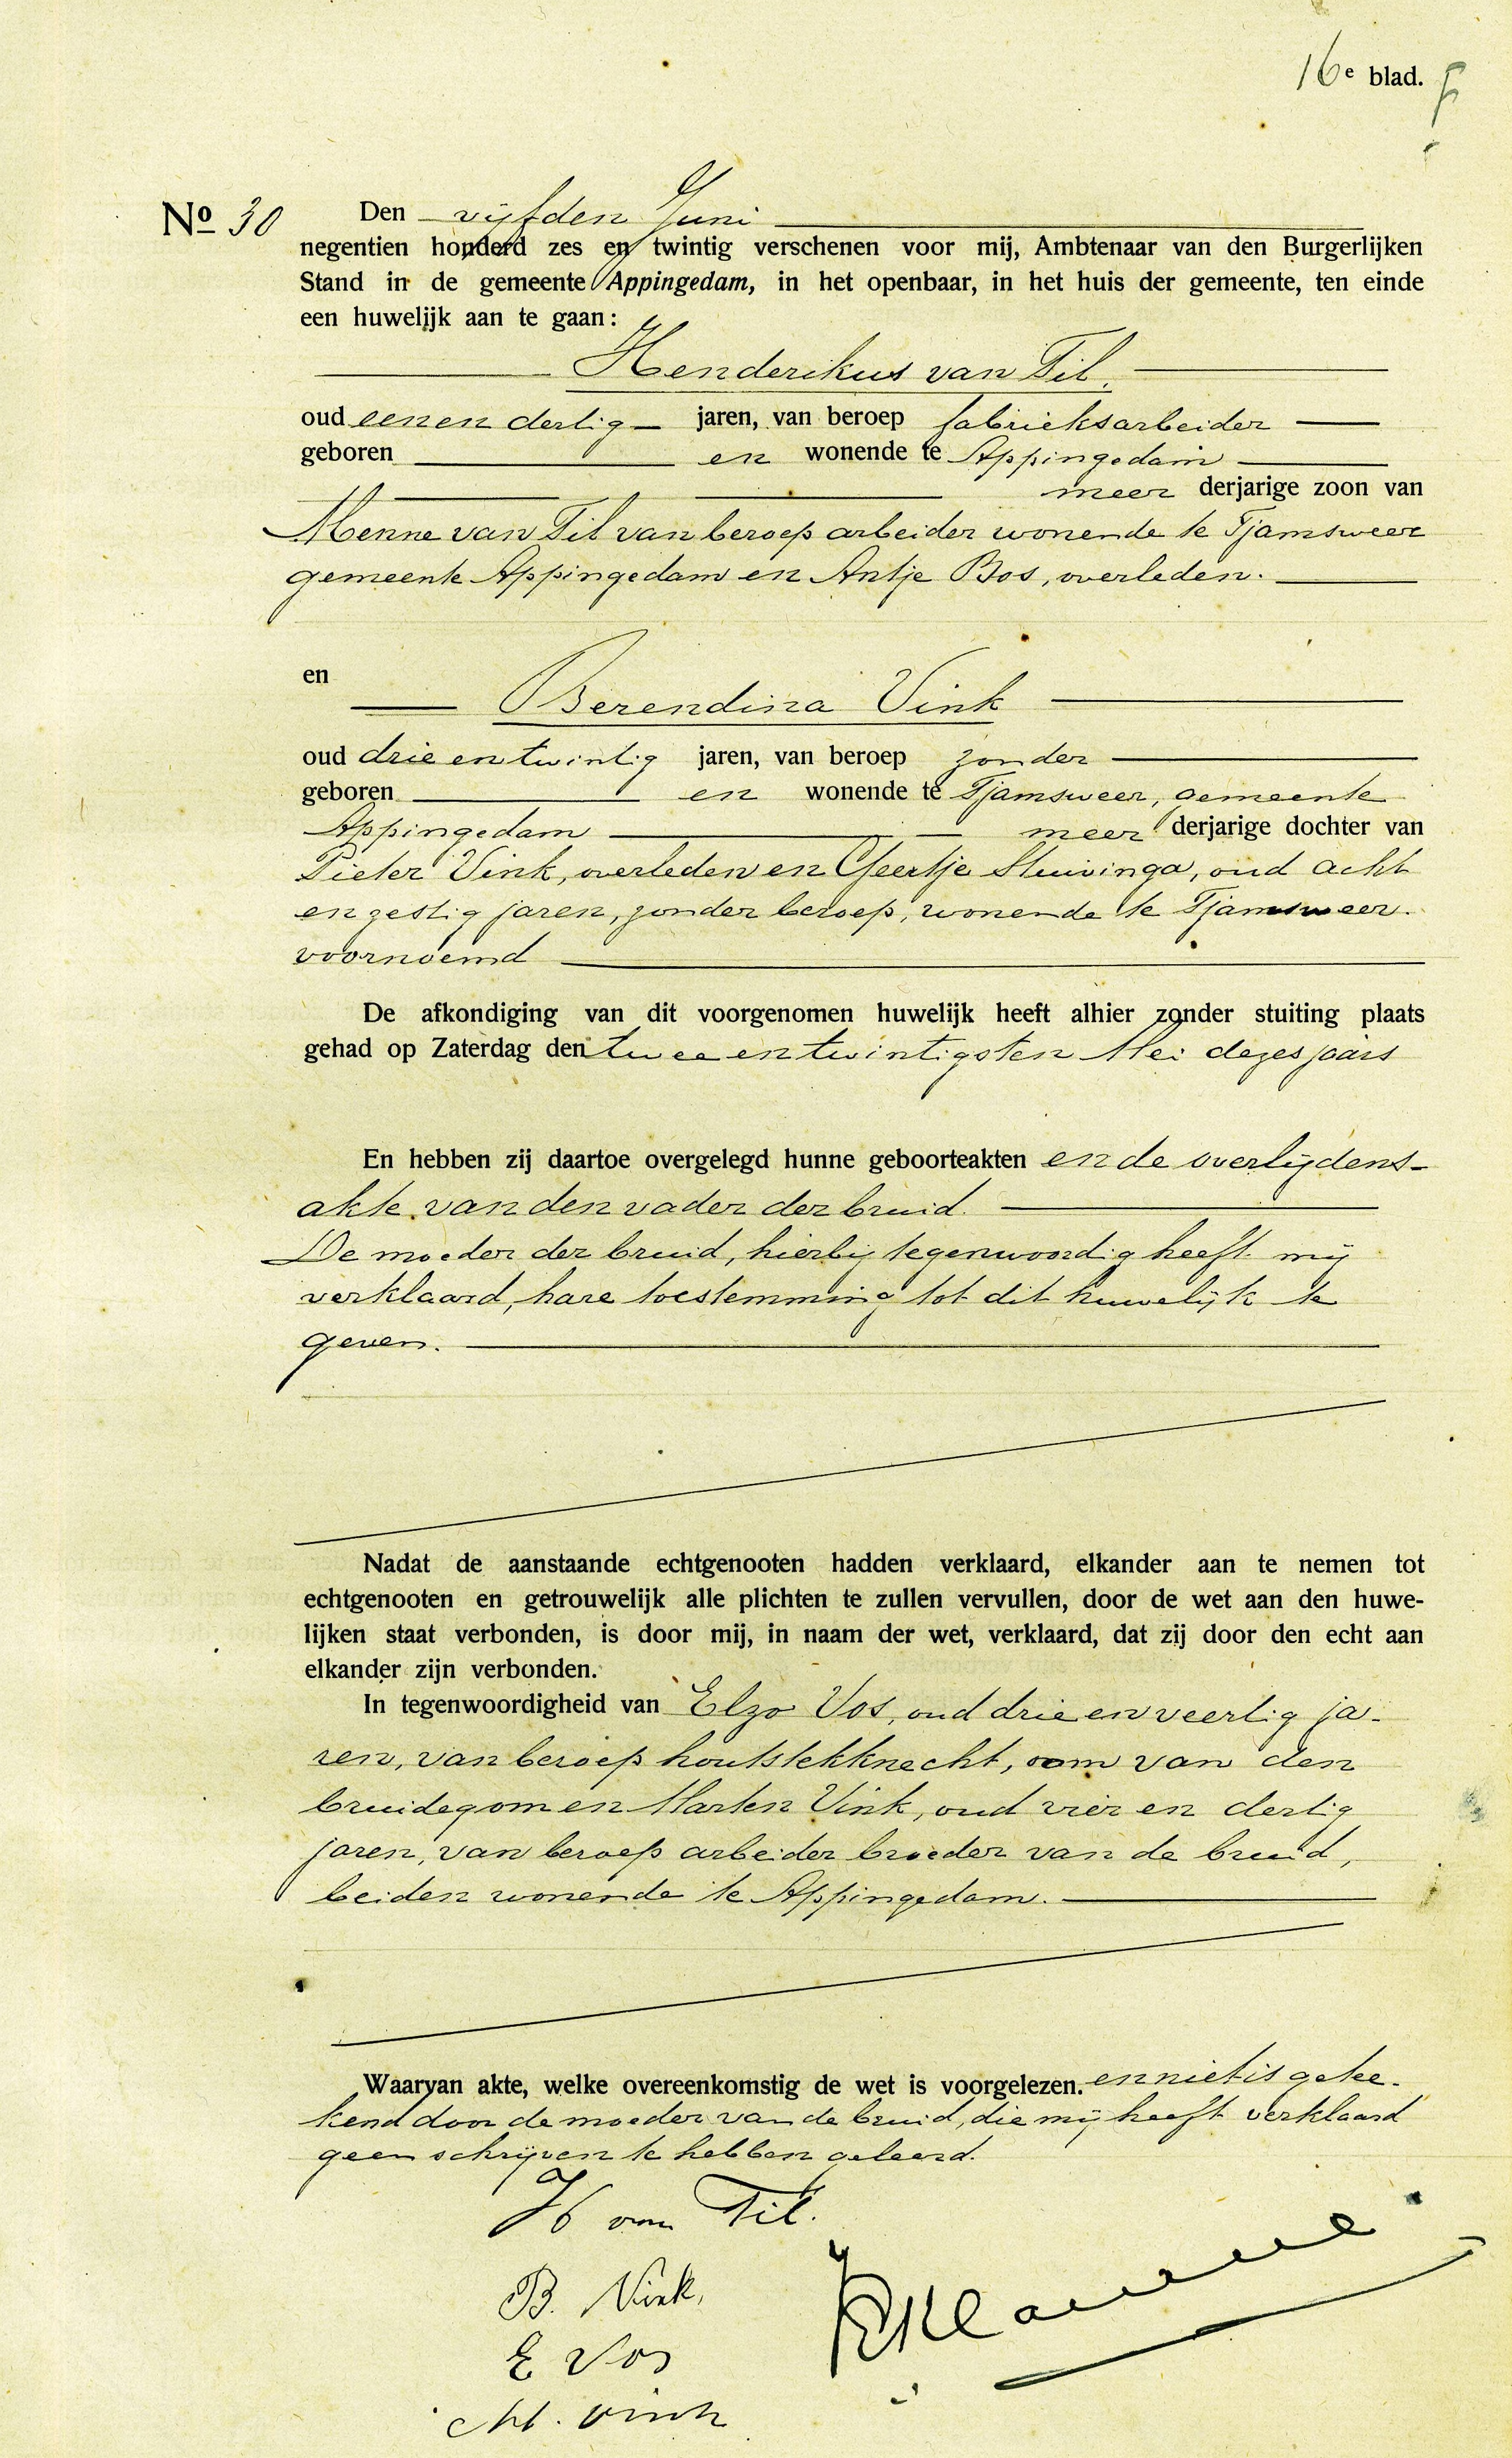 16e blad.
No 30 Den vijfden Juni
negentien honderd zes en twintig verschenen voor mij, Ambtenaar van den Burgerlijken
Stand in de gemeente Appingedam, in het openbaar, in het huis der gemeente, ten einde
een huwelijk aan te gaan:
Henderikus van Til.
oud een en dertig jaren, van beroep fabrieksarbeider
geboren en wonende te Appingedam
meer derjarige zoon van
Menne van Til van beroep arbeider wonende te Tjamsweer
gemeente Appingedam en Antje Bos, overleden.
en
Berendina Vink
oud drie en twintig jaren, van beroep zonder
geboren en wonende te Tjamsweer, gemeente
Appingedam meer derjarige dochter van
Pieter Vink, overleden en Geertje Stuivinga, oud acht
en zestig jaren, zonder beroep, wonende te Tjamsweer.
voornoemd
De afkondiging van dit voorgenomen huwelijk heeft alhier zonder stuiting plaats
gehad op Zaterdag den twee en twintigsten Mei dezes jaars
En hebben zij daartoe overgelegd hunne geboorteakten en de overlijdens-
akte van den vader der bruid.
De moeder der bruid, hierbij tegenwoordig heeft mij
verklaard, hare toestemming tot dit huwelijk te
geven.
Nadat de aanstaande echtgenooten hadden verklaard, elkander aan te nemen tot
echtgenooten en getrouwelijk alle plichten te zullen vervullen, door de wet aan den huwe-
lijken staat verbonden, is door mij, in naam der wet, verklaard, dat zij door den echt aan
elkander zijn verbonden.
In tegenwoordigheid van Elzo Vos, oud drie en veertig ja-
ren, van beroep houtstekknecht, oom van den
bruidegom en Marten Vink, oud vier en dertig
jaren, van beroep arbeider broeder van de bruid,
beiden wonende te Appingedam.
Waarvan akte, welke overeenkomstig de wet is voorgelezen. en niet is getee-
kend door de moeder van de bruid, die mij heeft verklaard
geen schrijven te hebben geleerd.
H van Til.
B. Vink,
E Vos
M. Vink